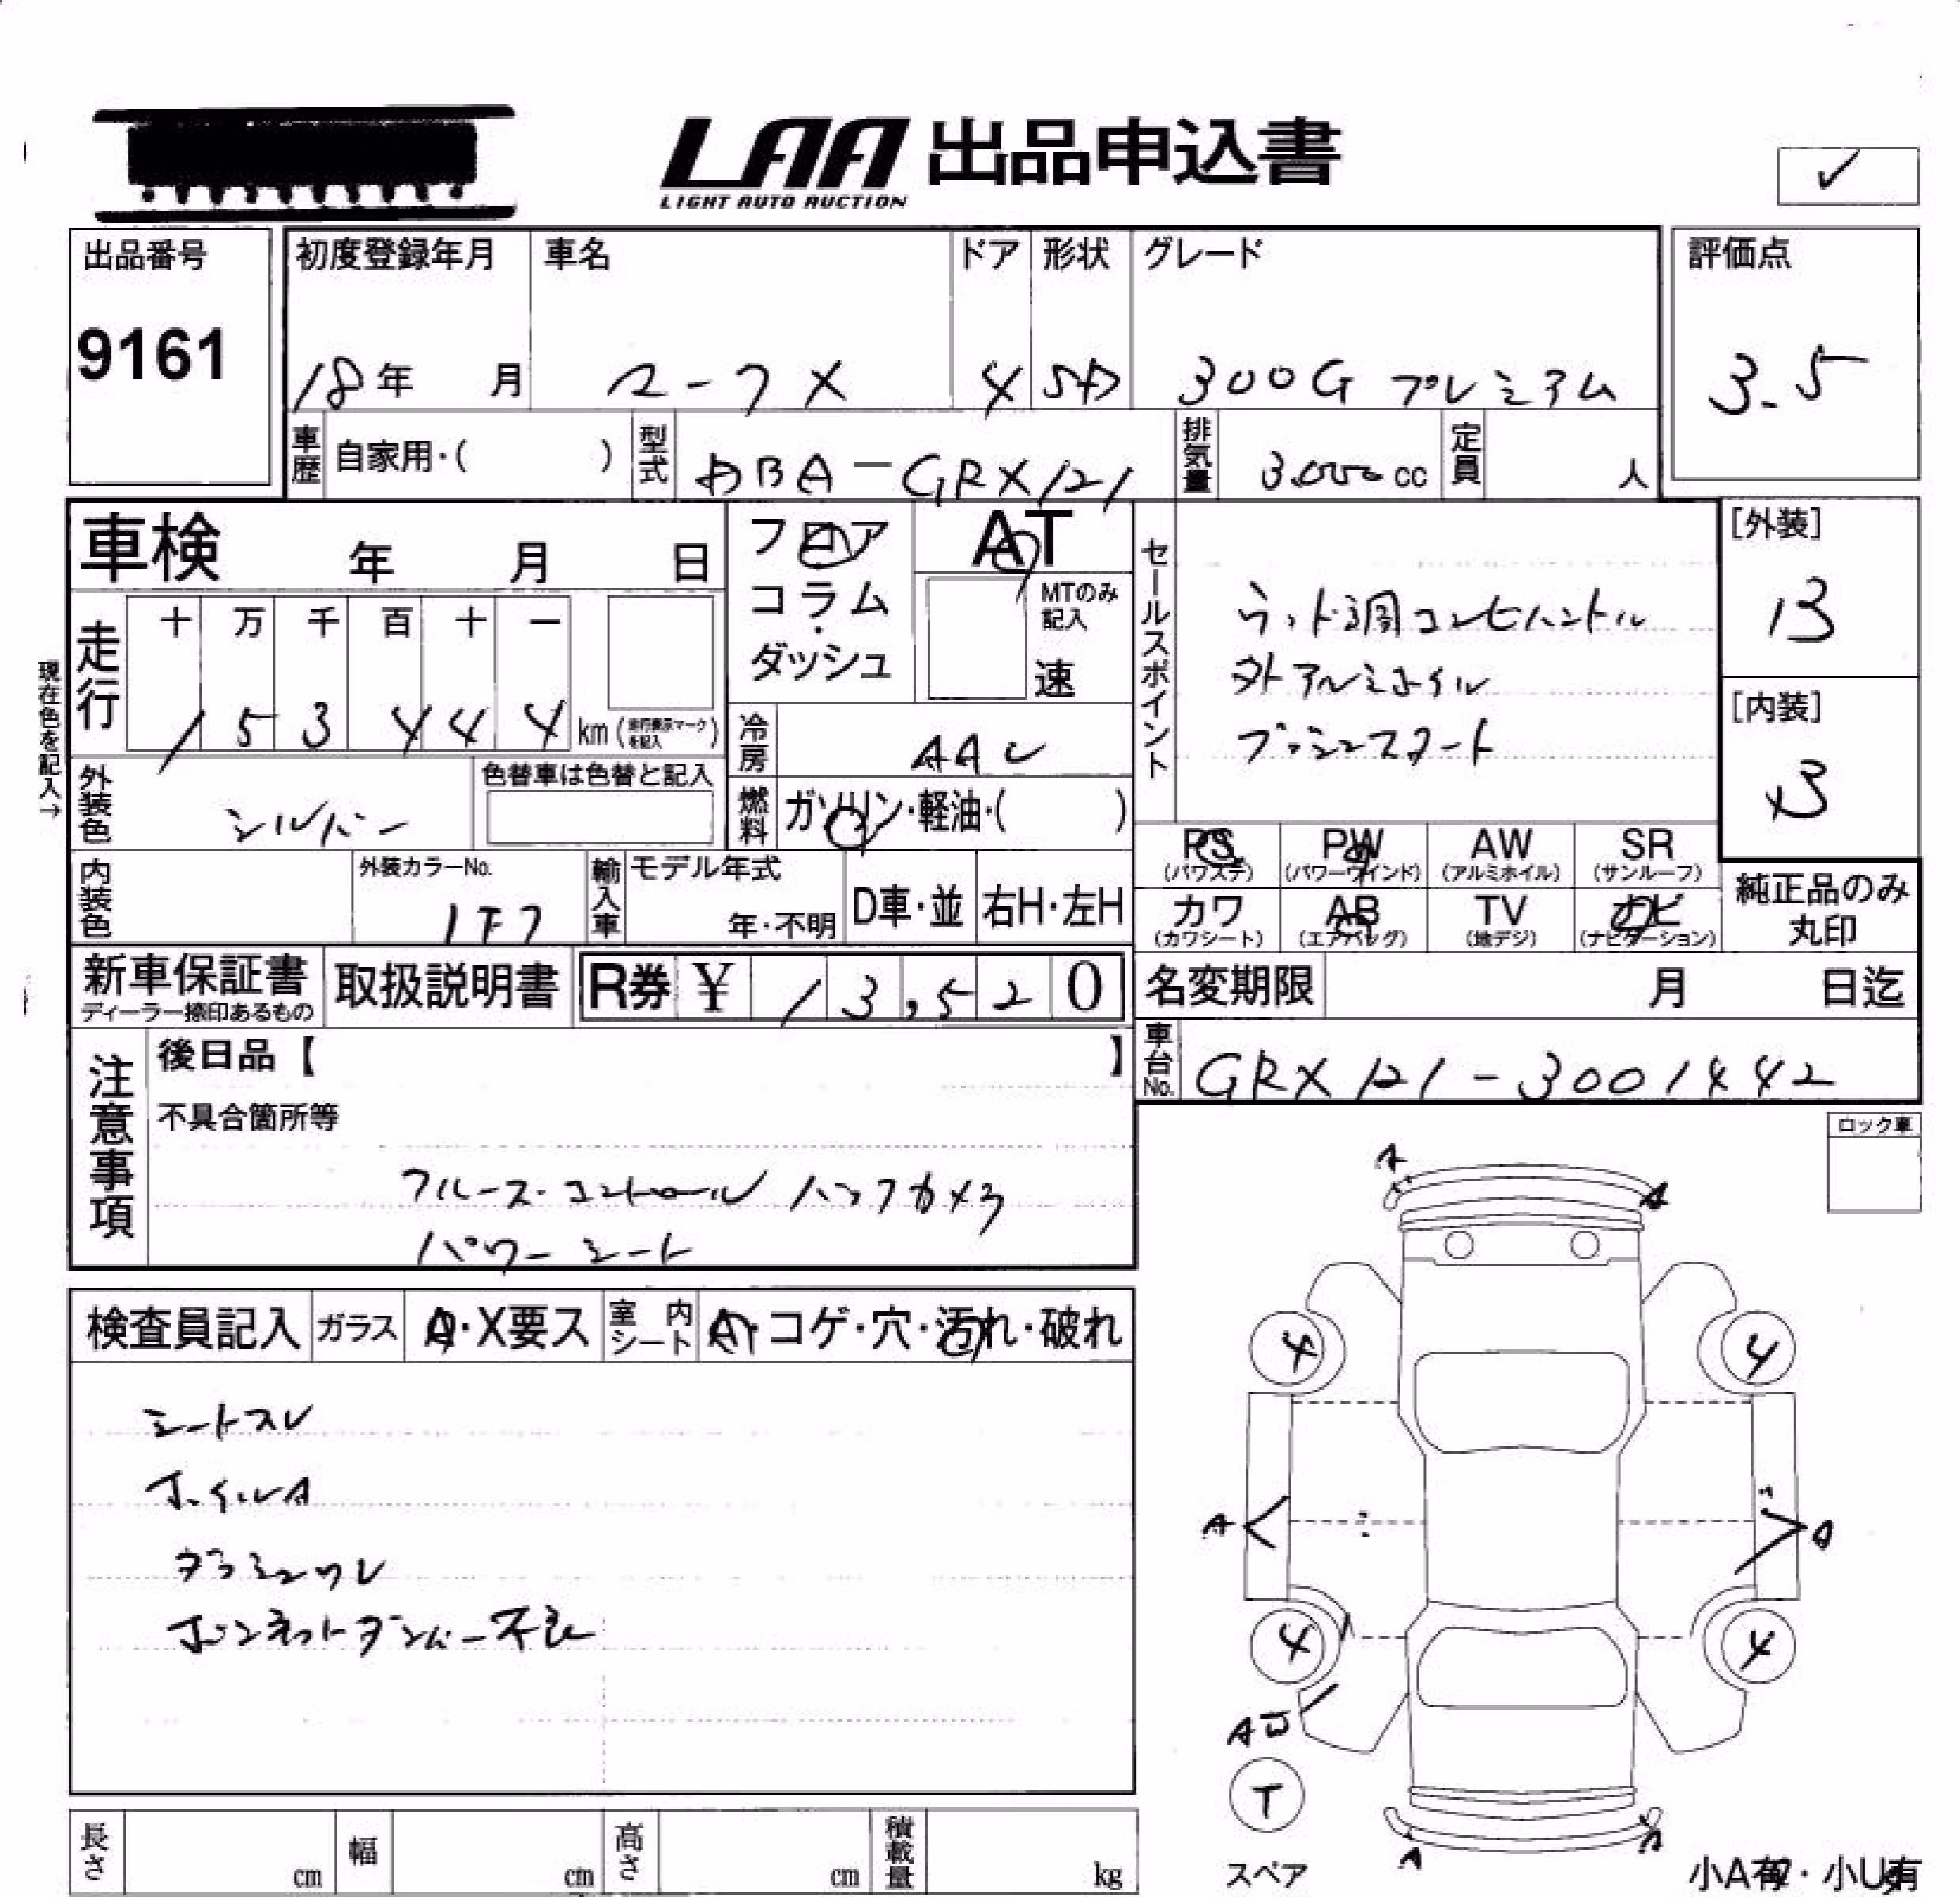 LAA 出品申込書
LIGHT AUTO AUCTION
✓
出品番号
9161
初度登録年月
18年 月
車名
マークX
ドア
4
形状
SD
グレード
300G プレミアム
評価点
3.5
車歴
自家用・( )
型式
DBA-GRX121
排気量
3.000cc
定員
人
車検 年 月 日
フロア
コラム
・
ダッシュ
AT
MTのみ
記入
速
現在色を記入→
走行
十 万 千 百 十 一
1 5 3 4 4 4 km (走行表示マークを記入)
冷房
AAC
燃料
ガソリン・軽油・( )
外装色
シルバー
色替車は色替と記入
内装色
外装カラーNo.
1F7
輸入車
モデル年式
年・不明
D車・並
右H・左H
セールスポイント
ウッド調コンビハンドル
外アルミホイル
プッシュスタート
[外装]
[内装]
PS
(パワステ)
PW
(パワーウインド)
AW
(アルミホイル)
SR
(サンルーフ)
カワ
(カワシート)
AB
(エアバッグ)
TV
(地デジ)
ナビ
(ナビゲーション)
純正品のみ
丸印
新車保証書
ディーラー捺印あるもの
取扱説明書
R券 ¥ 13,520
名変期限 月 日迄
車台No.
GRX121-3001442
注意事項
後日品【 】
不具合箇所等
クルーズ・コントロール バックカメラ
パワーシート
ロック車
検査員記入
ガラス
A・X要ス
室内シート
A・コゲ・穴・汚れ・破れ
シートスレ
ホイルA
ダッシュワレ
ボンネットダンパー不良
A
A
4
4
A
A
4
4
T
スペア
A
A
小A有・小U有
長さ
cm
幅
cm
高さ
cm
積載量
kg